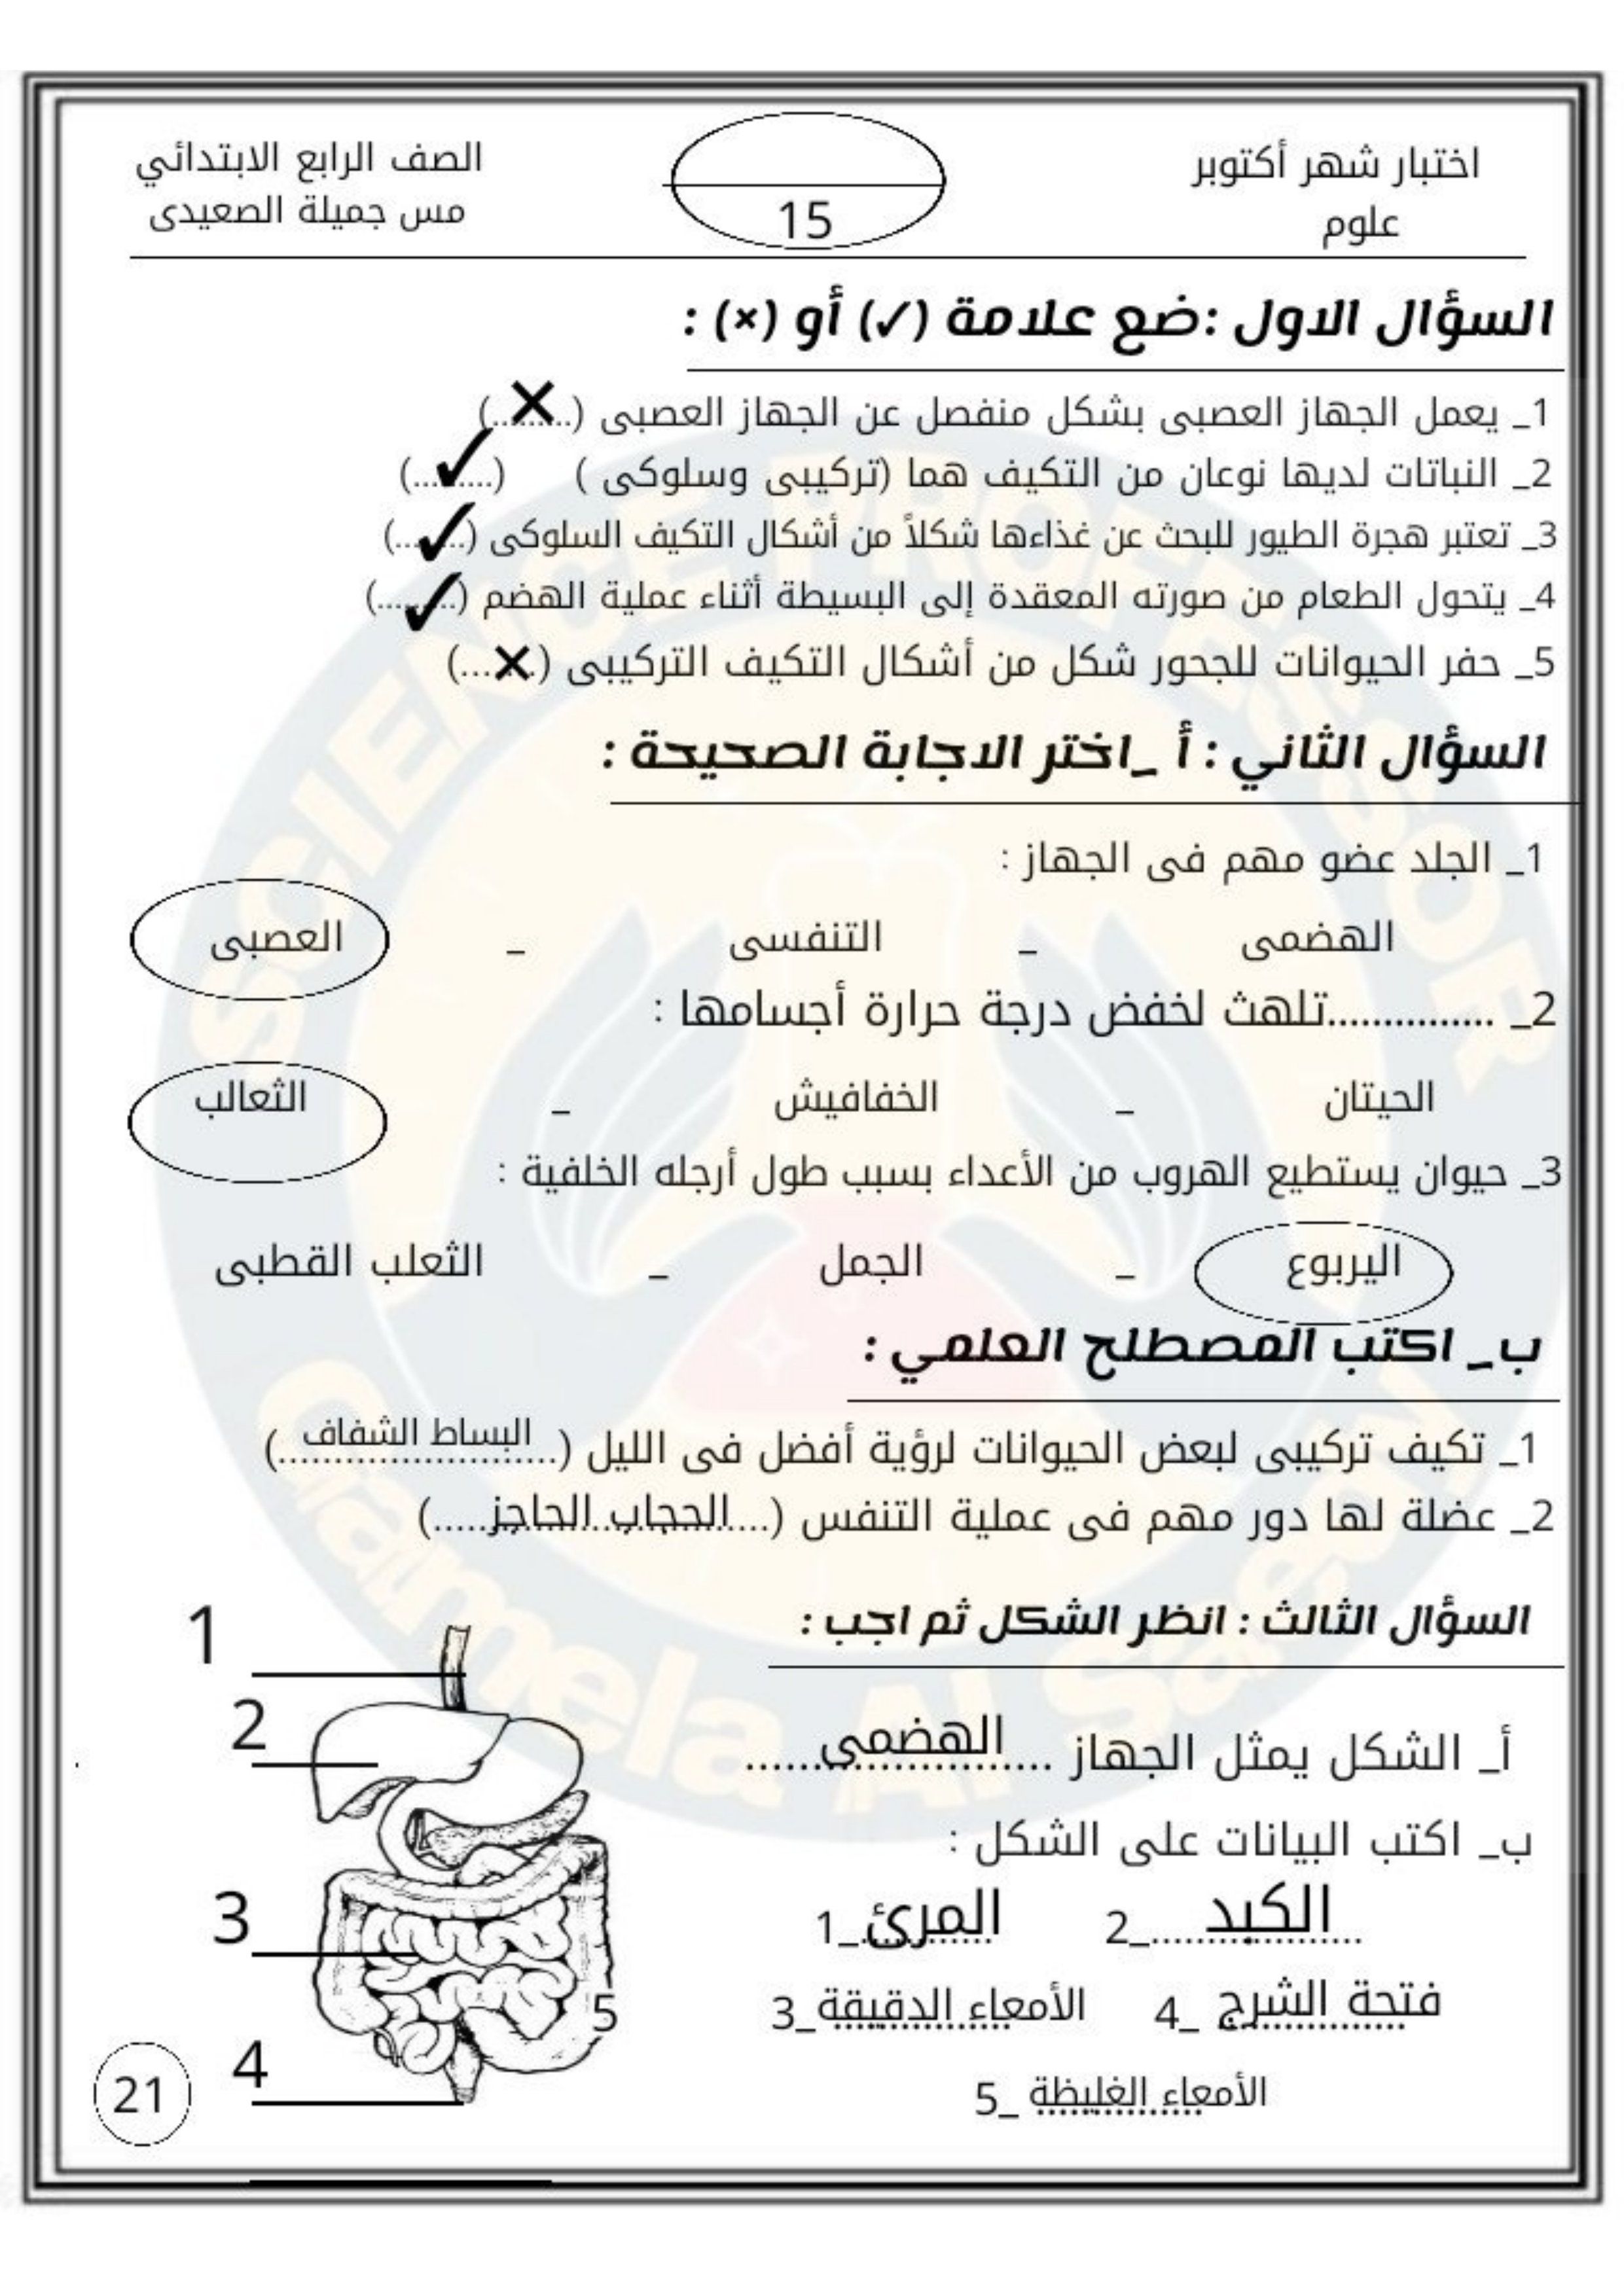 اختبار شهر أكتوبر
علوم
15
الصف الرابع الابتدائي
مس جميلة الصعيدى
السؤال الاول :ضع علامة (✓) أو (×) :
1_ يعمل الجهاز العصبى بشكل منفصل عن الجهاز العصبى (...×...)
2_ النباتات لديها نوعان من التكيف هما (تركيبى وسلوكى ) (...✓...)
3_ تعتبر هجرة الطيور للبحث عن غذاءها شكلاً من أشكال التكيف السلوكى (...✓...)
4_ يتحول الطعام من صورته المعقدة إلى البسيطة أثناء عملية الهضم (...✓...)
5_ حفر الحيوانات للجحور شكل من أشكال التكيف التركيبى (...×...)
السؤال الثاني : أ _اختر الاجابة الصحيحة :
1_ الجلد عضو مهم فى الجهاز :
الهضمى _ التنفسى _ العصبى
2_ ...............تلهث لخفض درجة حرارة أجسامها :
الحيتان _ الخفافيش _ الثعالب
3_ حيوان يستطيع الهروب من الأعداء بسبب طول أرجله الخلفية :
اليربوع _ الجمل _ الثعلب القطبى
ب_ اكتب المصطلح العلمي :
1_ تكيف تركيبى لبعض الحيوانات لرؤية أفضل فى الليل (البساط الشفاف)
2_ عضلة لها دور مهم فى عملية التنفس (....الحجاب الحاجز.....)
السؤال الثالث : انظر الشكل ثم اجب :
أ_ الشكل يمثل الجهاز الهضمى
ب_ اكتب البيانات على الشكل :
1_ المرئ 2_ الكبد
3_ الأمعاء الدقيقة 4_ فتحة الشرج
5_ الأمعاء الغليظة
1
2
3
5
4
21
SCIENCE PROFESSOR
Gamela Al Saedy